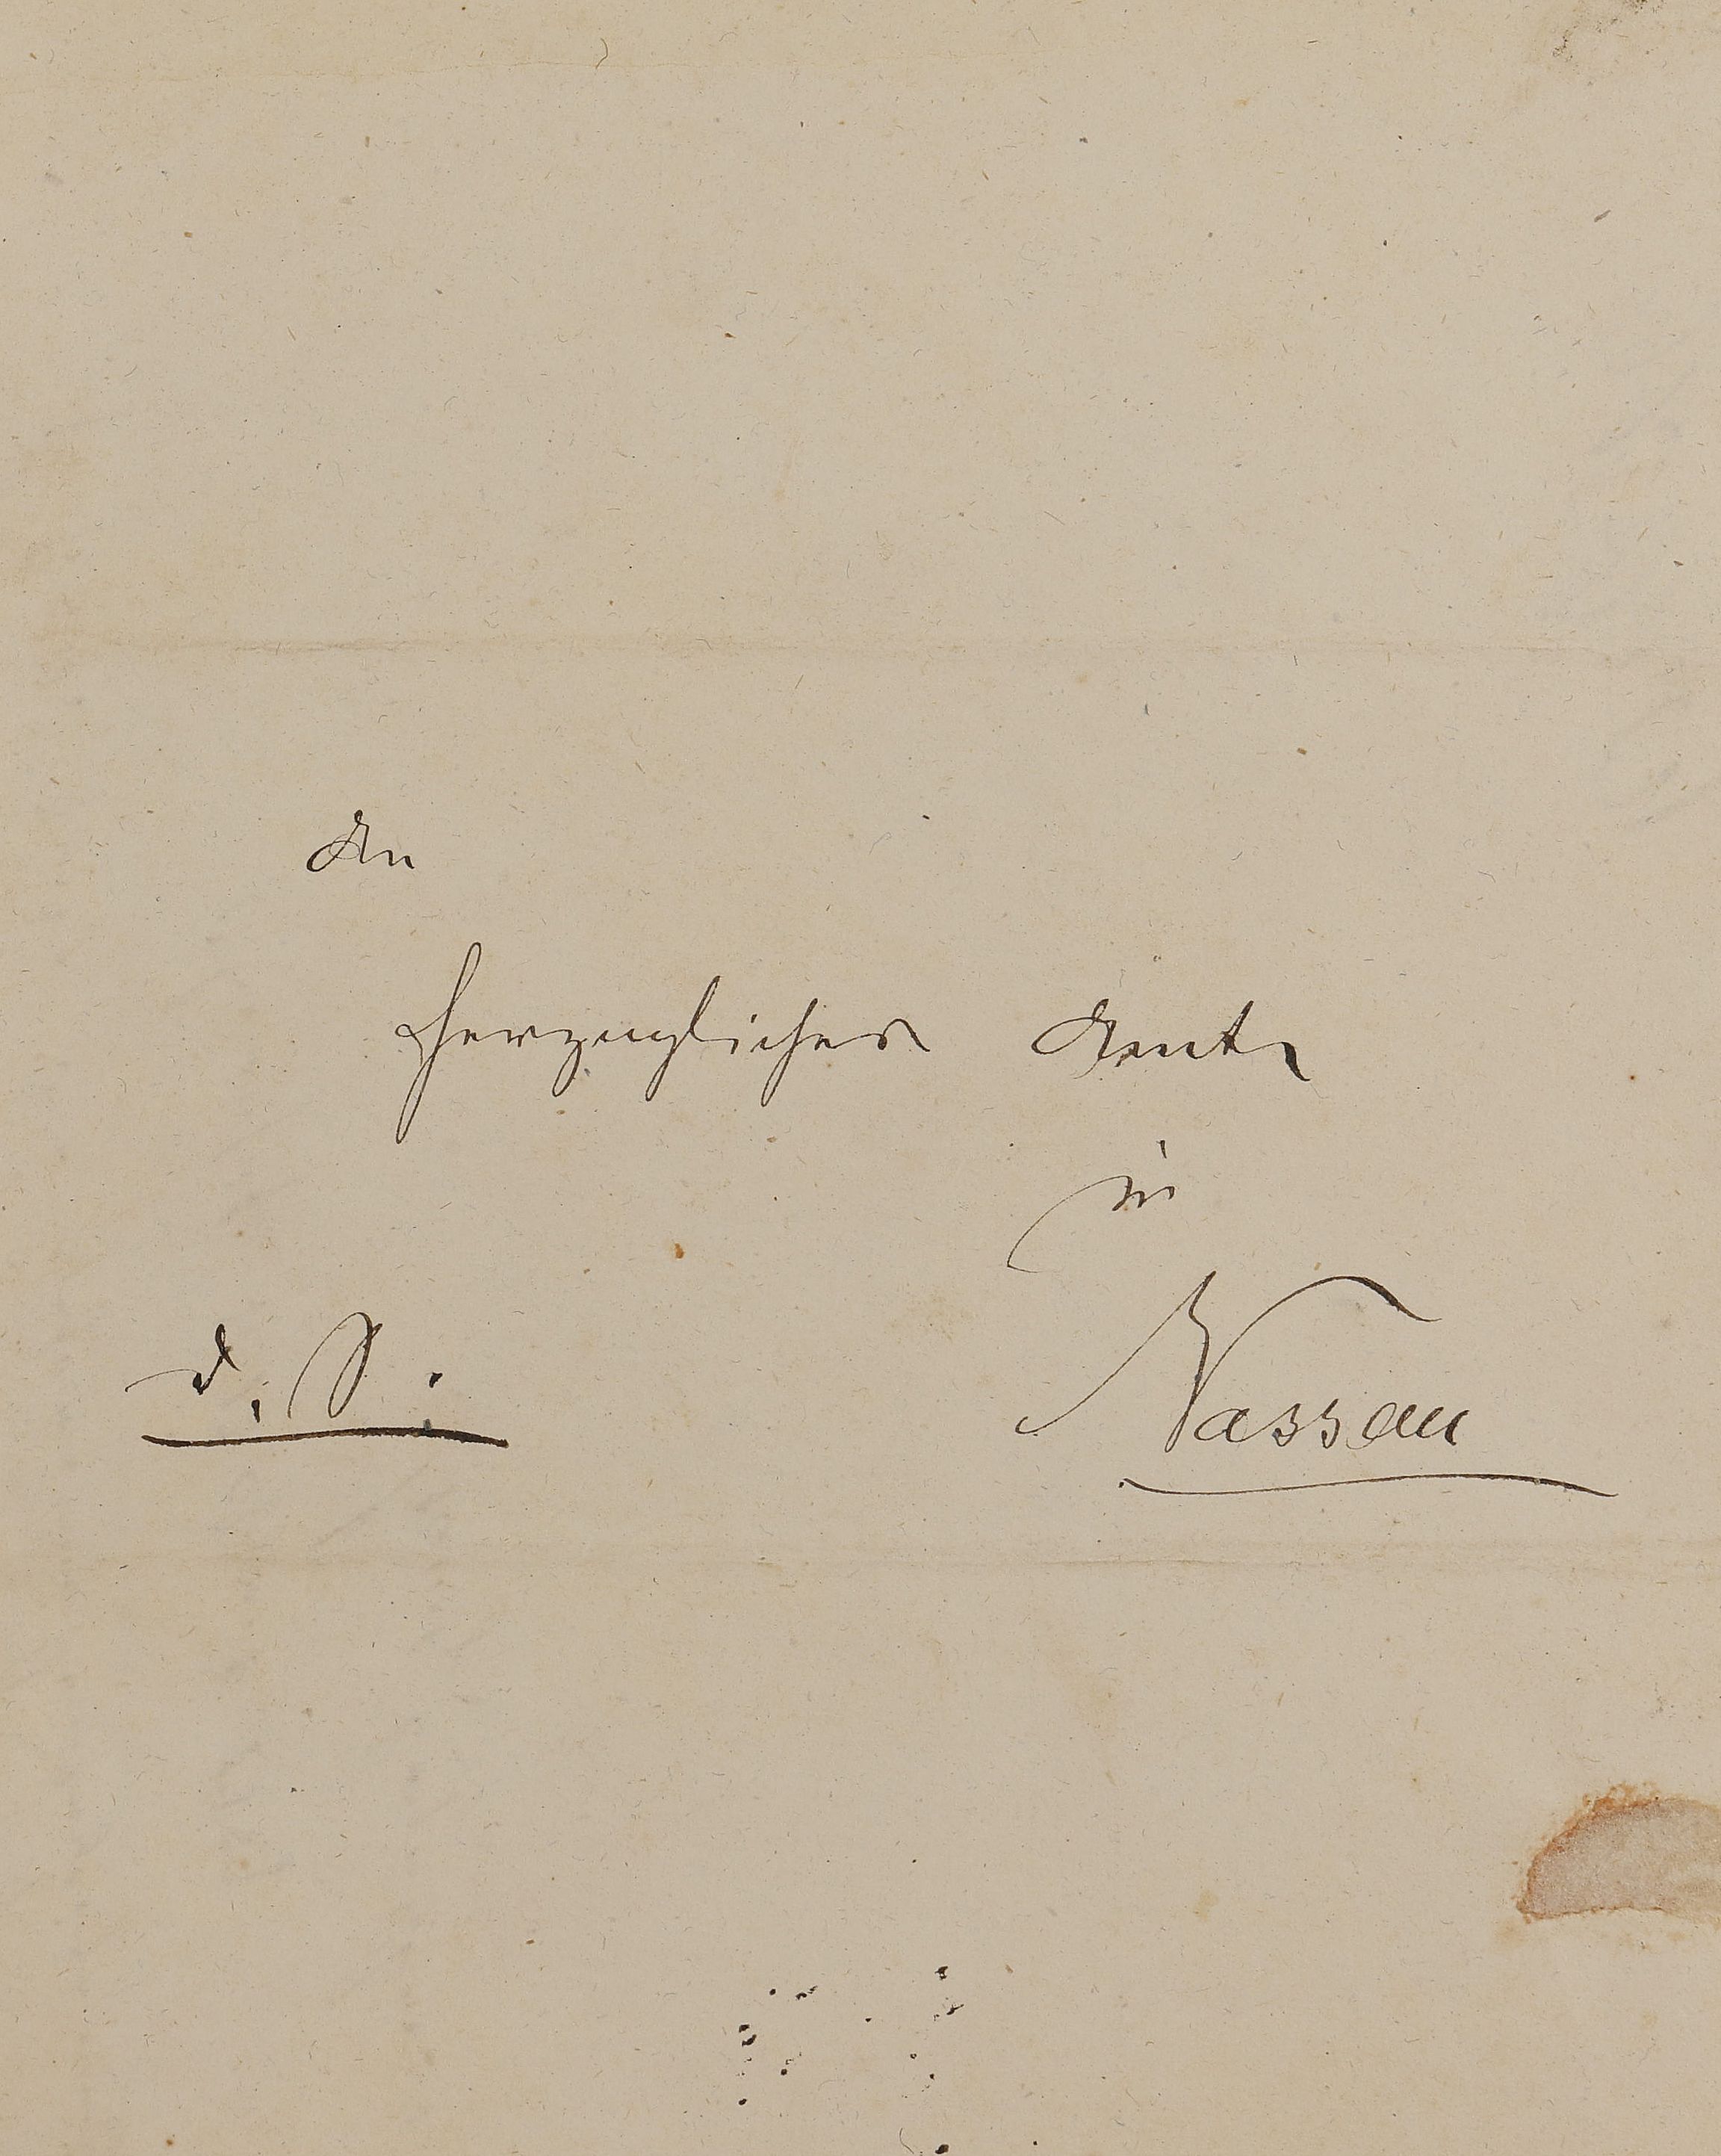 An
Herzogliches Amt
in
d. S.
Nassau